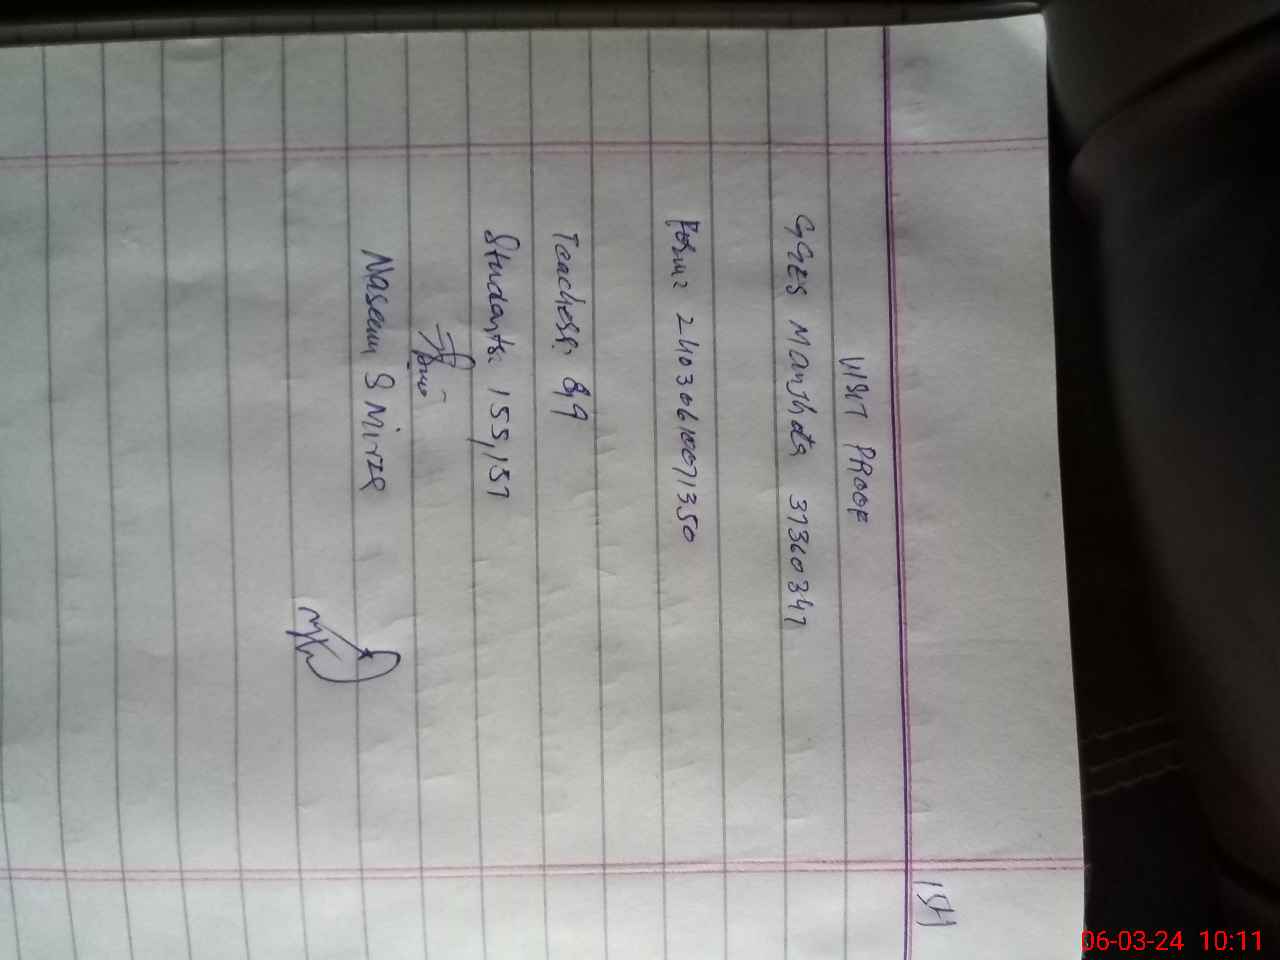 154
VISIT PROOF
GGES Manjhota 37360347
Form: 24030610071350
Teachers: 8,9
Students: 155,157
Naseem S Mirza
06-03-24 10:11